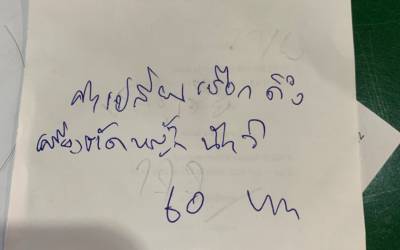 ค่าเปลี่ยนเชือกดึง
เครื่องตัดหญ้า
60 บาท